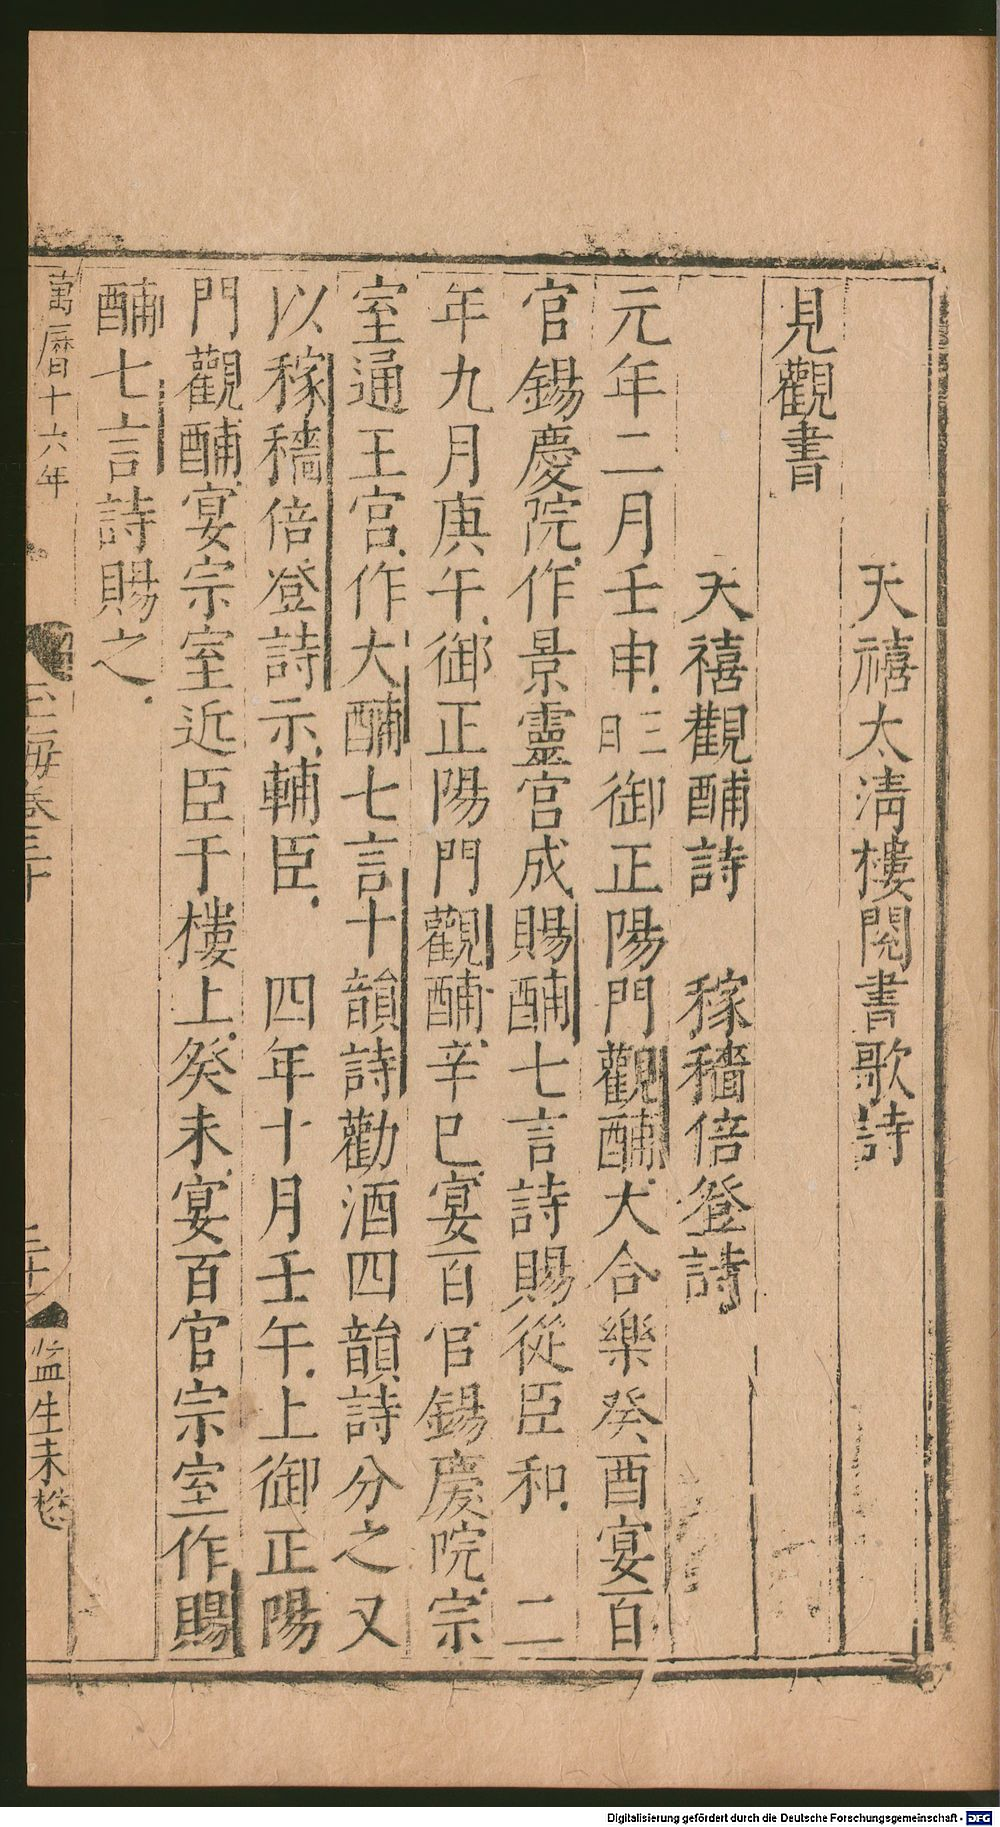 天禧太清樓閱書歌詩
見觀書
天禧觀酺詩　稼穡倍登詩
元年二月壬申三日御正陽門觀酺大合樂癸酉宴百
官錫慶院作景靈宮成賜酺七言詩賜從臣和　二
年九月庚午御正陽門觀酺辛巳宴百官錫慶院宗
室通王宮作大酺七言十韻詩勸酒四韻詩分之又
以稼穡倍登詩示輔臣　四年十月壬午上御正陽
門觀酺宴宗室近臣于樓上癸未宴百官宗室作賜
酺七言詩賜之
萬曆十六年
玉海卷三十
監生未
Digitalisierung gefördert durch die Deutsche Forschungsgemeinschaft - DFG